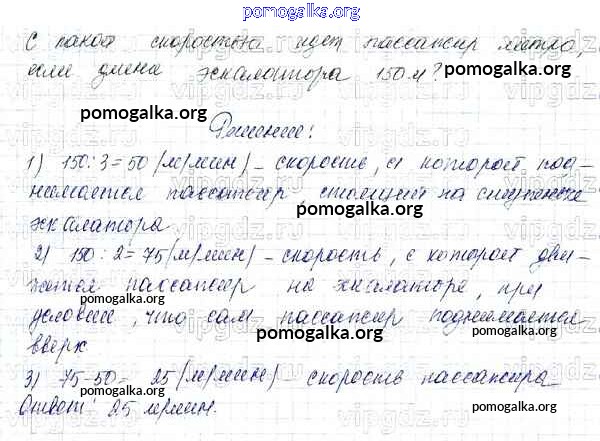 pomogalka.org
С какой скоростью идет пассажир метро,
если длина эскалатора 150 м?
pomogalka.org
pomogalka.org
Решение:
pomogalka.org
1) 150:3=50 (м/мин) – скорость, с которой под-
нимается пассажир, стоящий на ступеньке
pomogalka.org
эскалатора.
2) 150:2=75 (м/мин) – скорость, с которой дви-
жется пассажир на эскалаторе, при
pomogalka.org
условии, что сам пассажир поднимается
pomogalka.org
pomogalka.org
вверх
3) 75-50= 25 (м/мин) – скорость пассажира
Ответ: 25 м/мин.
pomogalka.org
pomogalka.org